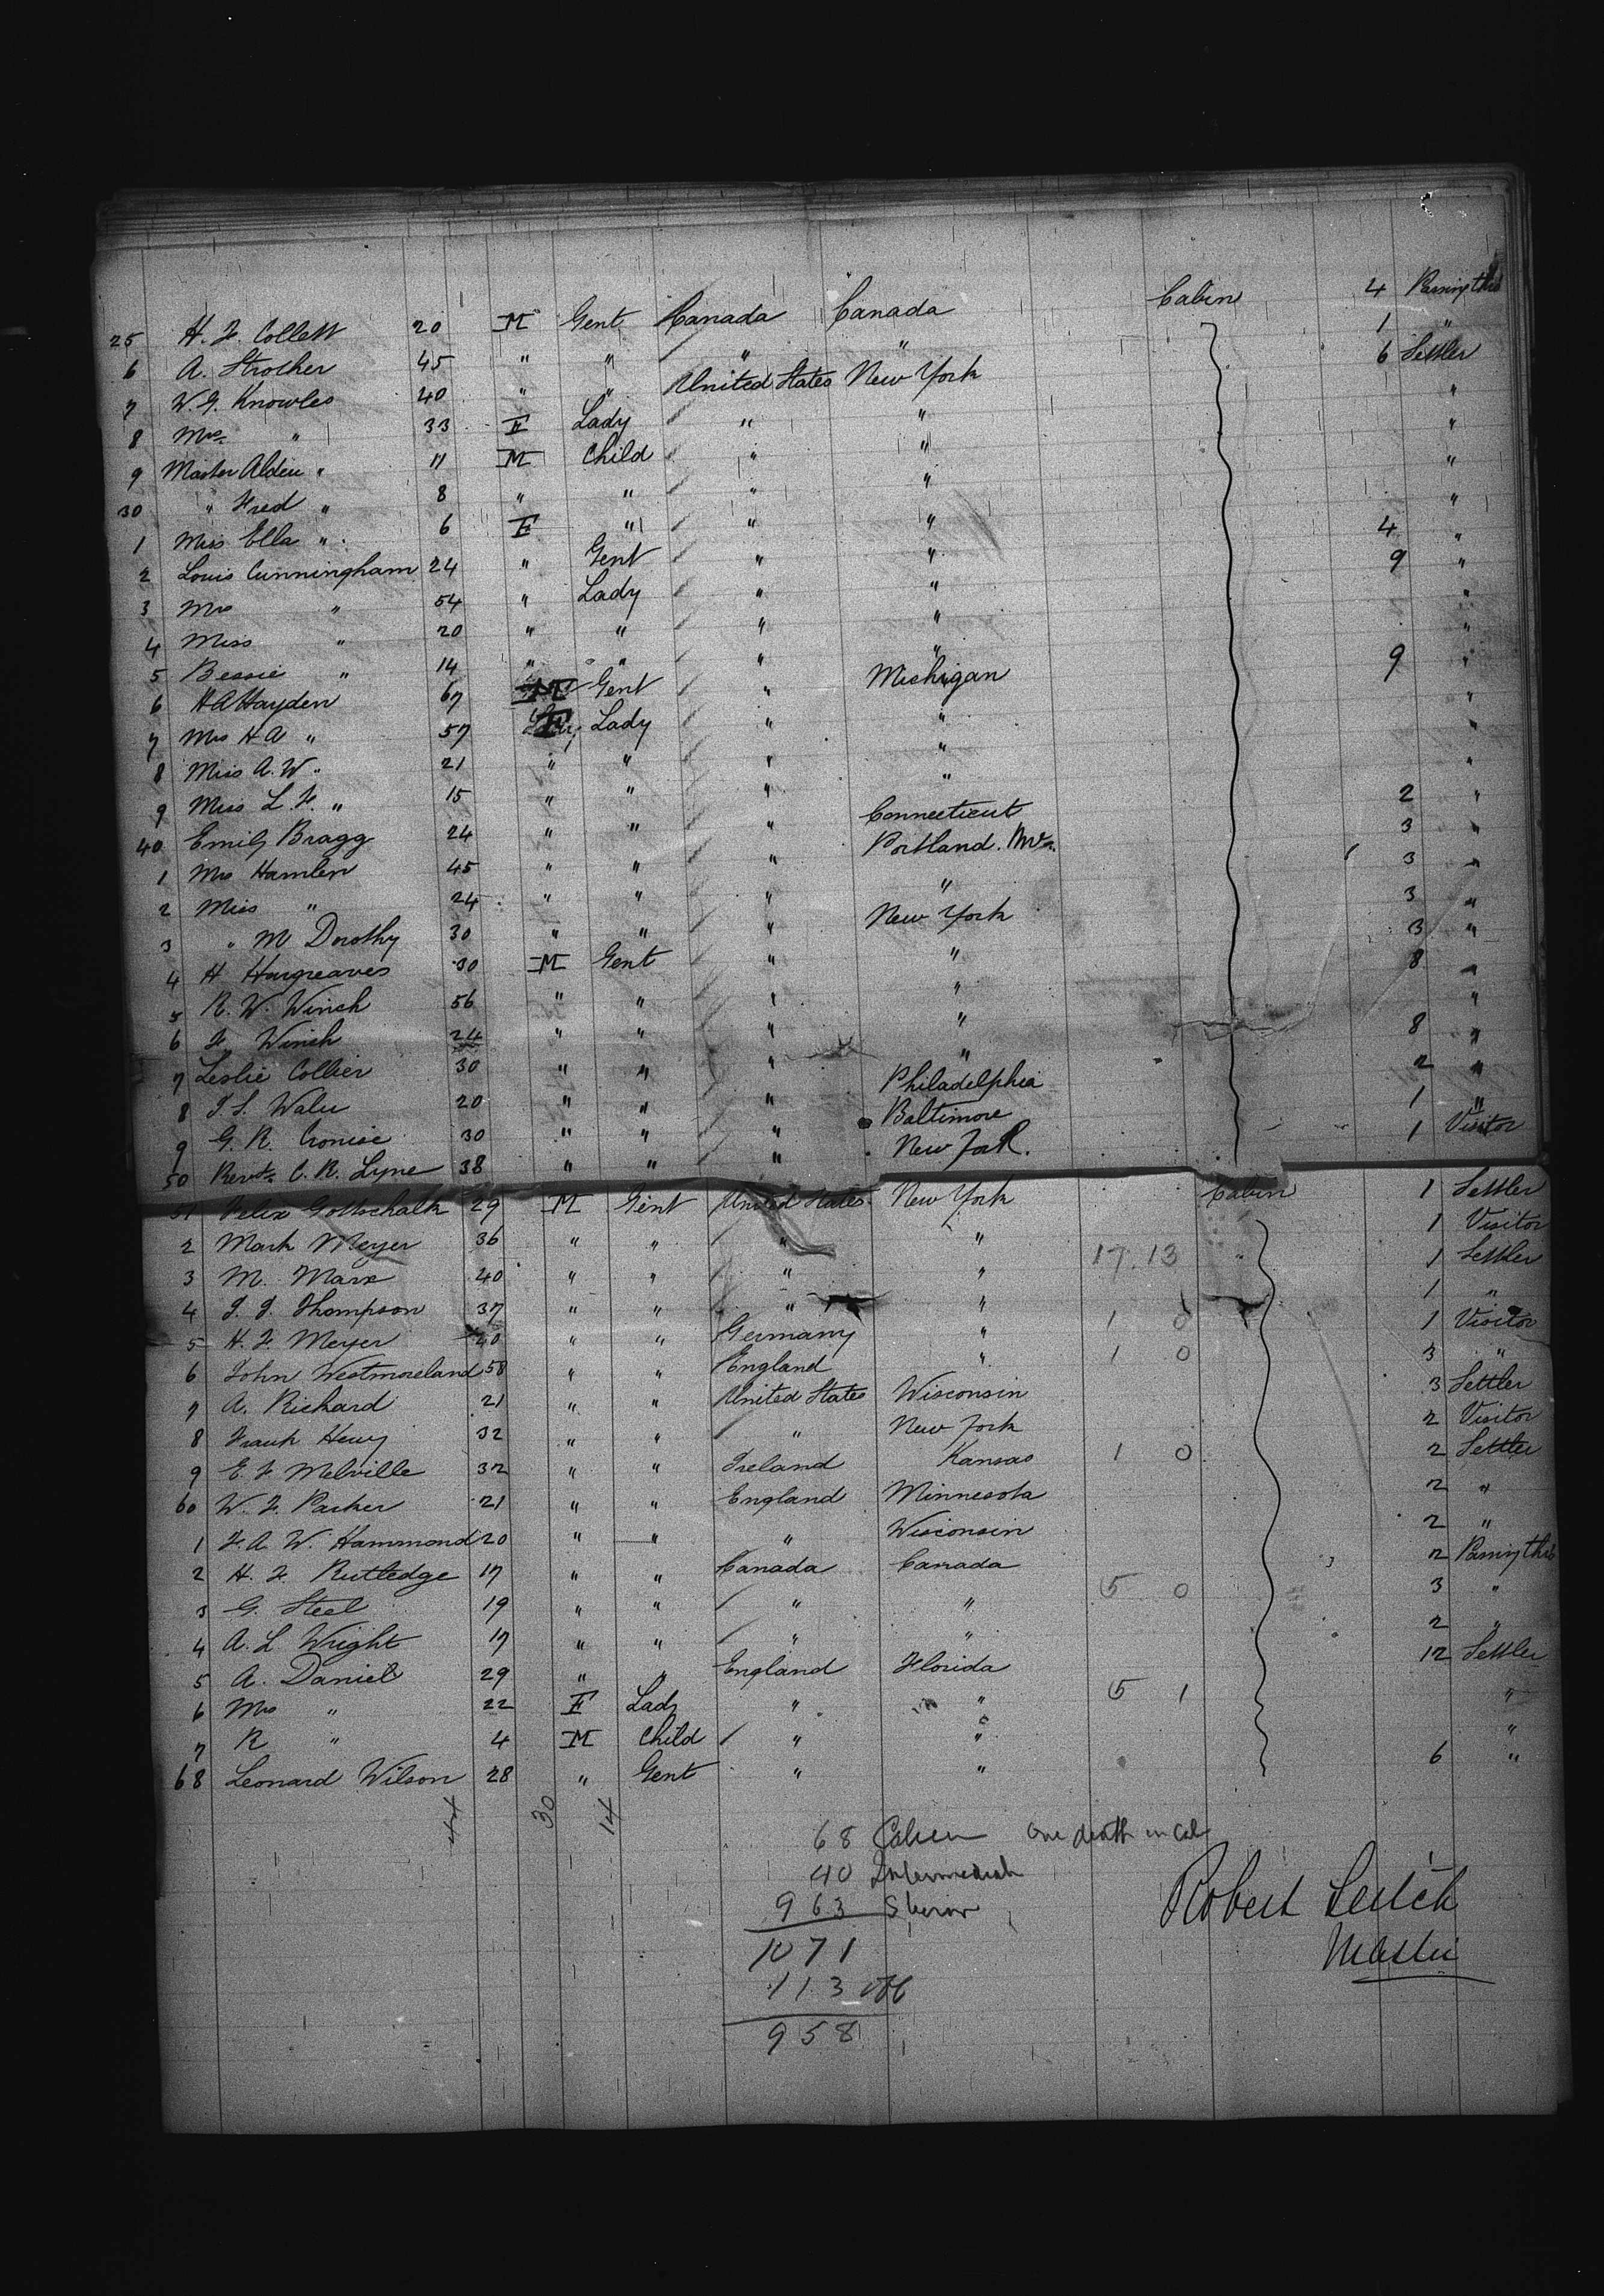 25 H. F. Collett 20 M Gent Canada Canada Cabin 4 Passing thro
6 A. Strother 45 " " " " 1 "
7 W. G. Knowles 40 " " United States New York 6 Settler
8 Mrs " 33 F Lady " " "
9 Master Alden " 11 M Child " " "
30 " Fred " 8 " " " " "
1 Miss Ella " 6 F " " " "
2 Louis Cunningham 24 " Gent " " 4 "
3 Mrs " 54 " Lady " " 9 "
4 Miss " 20 " " " " "
5 Bessie " 14 " " " " "
6 H A Hayden 67 M Gent " Michigan 9 "
7 Mrs H A " 57 F Lady " " "
8 Miss A. W. " 21 " " " " "
9 Miss L. F. " 15 " " " " "
40 Emily Bragg 24 " " " Connecticut 2 "
1 Mrs Hamlen 45 " " " Portland. 3 "
2 Miss " 24 " " " " 3 "
3 " M Dorothy 30 " " " New York 3 "
4 H Hargreaves 30 M Gent " " 3 "
5 R. W. Winch 56 " " " " 8 "
6 F. Winch 24 " " " " "
7 Leslie Collier 30 " " " " 8 "
8 20 " " " Philadelphia 2 "
9 G. R. Cronise 30 " " " Baltimore 1 "
50 Revd. C. R. Lyne 38 " " " New York. 1 Visitor
51 Felix Gottschalk 29 M Gent United States New York Cabin 1 Settler
2 Mark Meyer 36 " " " " 1 Visitor
3 M. Marx 40 " " " " 17.13 1 Settler
4 J. J. Thompson 37 " " " " 1 "
5 H. F. Meyer 40 " " Germany " 1 0 1 Visitor
6 John Westmoreland 58 " " England " 1 0 3 "
7 A. Richard 21 " " United States Wisconsin 3 Settler
8 Frank Henry 32 " " " New York 2 Visitor
9 E. F Melville 32 " " Ireland Kansas 1 0 2 Settler
60 W. F. Parker 21 " " England Minnesota 2 "
1 F. A. W. Hammond 20 " " " Wisconsin 2 "
2 H. F. Rutledge 17 " " Canada Canada 2 Passing thro
3 G. Steel 19 " " " " 5 0 3 "
4 A. L Wright 17 " " " " 2 "
5 A. Daniel 29 " " England Florida 12 Settler
6 Mrs " 22 F Lady " " 5 1 "
7 R " 4 M Child " " "
68 Leonard Wilson 28 " Gent " " 6 "
44 30 14
68 Cabin one death in Cab
40 Intermediate
963 Steer
1071
113 off
958
Robert Leitch
Master